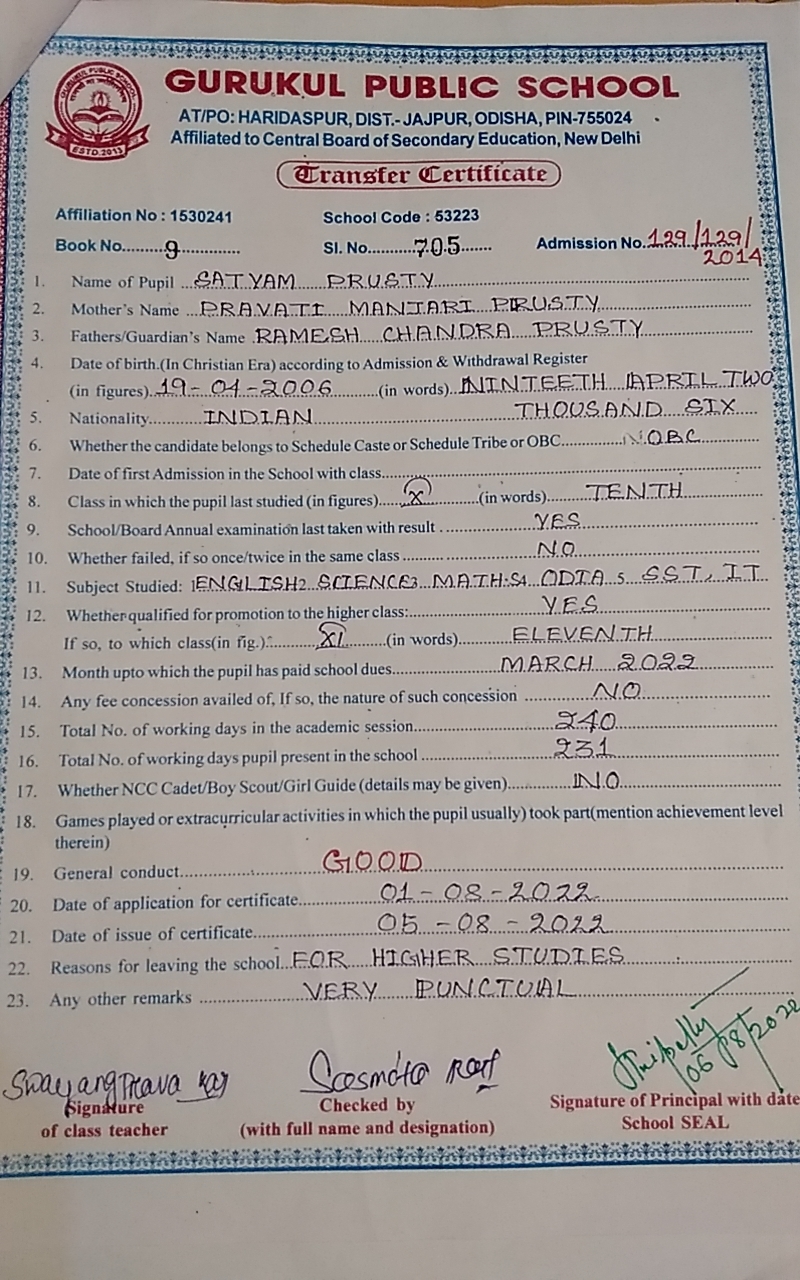 GURUKUL PUBLIC SCHOOL
GURUKUL PUBLIC SCHOOL
ESTD.2013
AT/PO: HARIDASPUR, DIST.- JAJPUR, ODISHA, PIN-755024
Affiliated to Central Board of Secondary Education, New Delhi
Transfer Certificate
Affiliation No : 1530241 School Code : 53223
Book No. 9 Sl. No. 705 Admission No. 129/129/
2014
1. Name of Pupil SATYAM PRUSTY
2. Mother's Name PRAVATI MANJARI PRUSTY
3. Fathers/Guardian's Name RAMESH CHANDRA PRUSTY
4. Date of birth.(In Christian Era) according to Admission & Withdrawal Register
(in figures) 19-04-2006 (in words) NINTEETH APRIL TWO
5. Nationality INDIAN THOUSAND SIX
6. Whether the candidate belongs to Schedule Caste or Schedule Tribe or OBC NOBC
7. Date of first Admission in the School with class
8. Class in which the pupil last studied (in figures) X (in words) TENTH
9. School/Board Annual examination last taken with result YES
10. Whether failed, if so once/twice in the same class NO
11. Subject Studied: 1 ENGLISH 2 SCIENCE 3 MATH-S 4 ODIA 5 SST, IT
12. Whether qualified for promotion to the higher class: YES
If so, to which class(in fig.) XI (in words) ELEVENTH
13. Month upto which the pupil has paid school dues MARCH 2022
14. Any fee concession availed of, If so, the nature of such concession NO
15. Total No. of working days in the academic session 240
16. Total No. of working days pupil present in the school 231
17. Whether NCC Cadet/Boy Scout/Girl Guide (details may be given) NO
18. Games played or extracurricular activities in which the pupil usually) took part(mention achievement level
therein)
19. General conduct GOOD
20. Date of application for certificate 01-08-2022
21. Date of issue of certificate 05-08-2022
22. Reasons for leaving the school FOR HIGHER STUDIES
23. Any other remarks VERY PUNCTUAL
05/08/2022
Signature Checked by Signature of Principal with date
of class teacher (with full name and designation) School SEAL